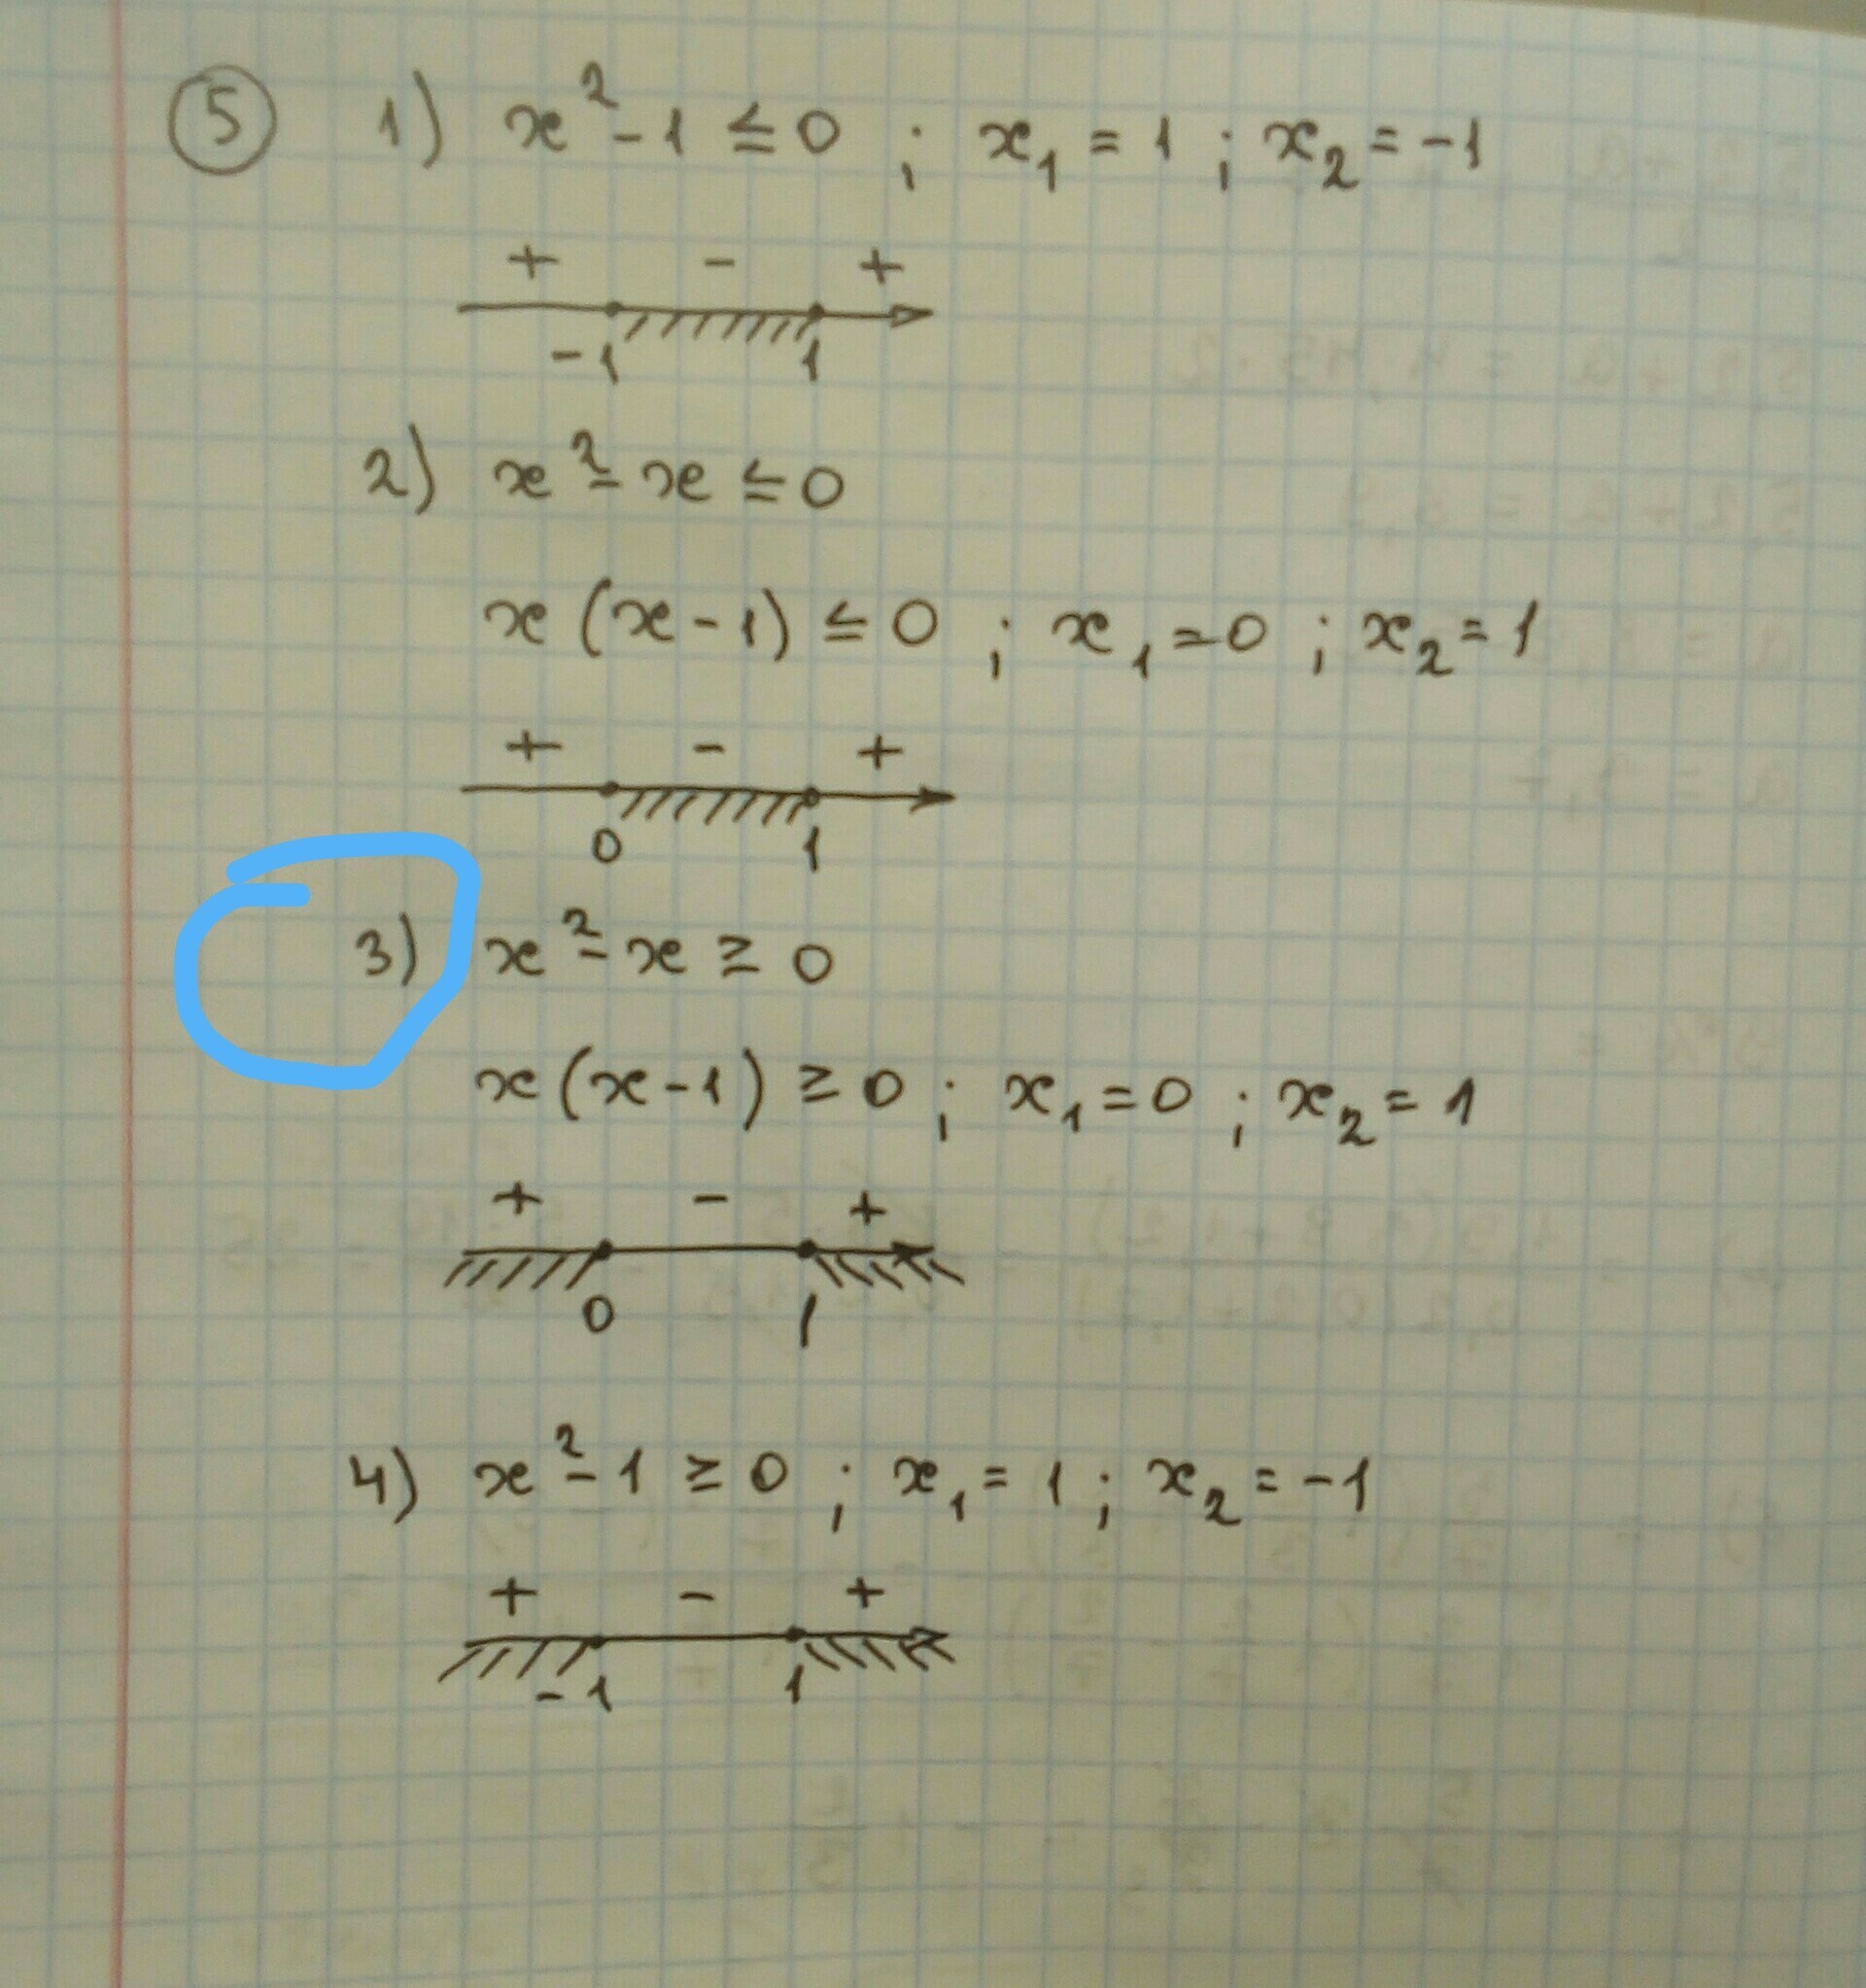 5 1) x² - 1 ≤ 0 ; x₁ = 1 ; x₂ = -1
+ - +
-1 1
2) x² - x ≤ 0
x (x - 1) ≤ 0 ; x₁ = 0 ; x₂ = 1
+ - +
0 1
3) x² - x ≥ 0
x (x - 1) ≥ 0 ; x₁ = 0 ; x₂ = 1
+ - +
0 1
4) x² - 1 ≥ 0 ; x₁ = 1 ; x₂ = -1
+ - +
-1 1